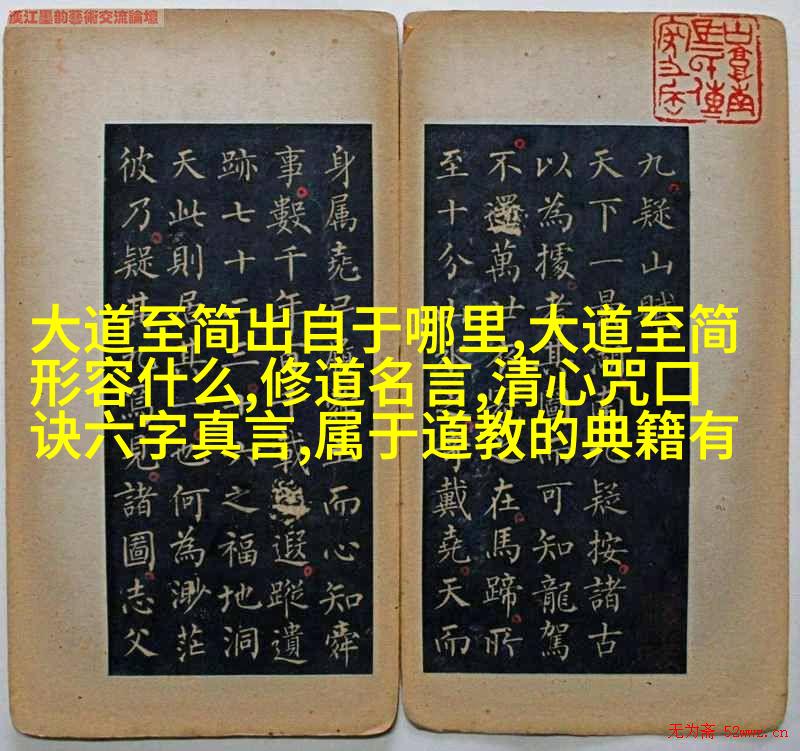 漢江墨韵藝術交流論壇
九疑山賦
天下一 疑按諸古
以為據者 而可知龍駕
不還萬世 在馬蹄所
至十分 戴堯天而
身属堯 而心知舜
事數千年 載 遐蹤遺
跡七十二 之福地洞
天此則居其 也何為渺茫
彼乃疑其 見諸圖志父
大道至简出自于哪里,大道至简
形容什么,修道名言,清心咒口
诀六字真言,属于道教的典籍有
无为斋 52wwz.cn